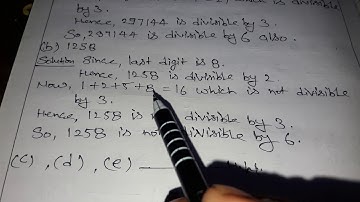 by 3.
Hence, 297144 is divisible by 3.
So, 297144 is divisible by 6 also.
(b) 1258
Solution Since, last digit is 8.
Hence, 1258 is divisible by 2.
Now, 1+2+5+8 = 16 which is not divisible
by 3.
Hence, 1258 is not divisible by 3.
So, 1258 is not divisible by 6.
(c), (d), (e)